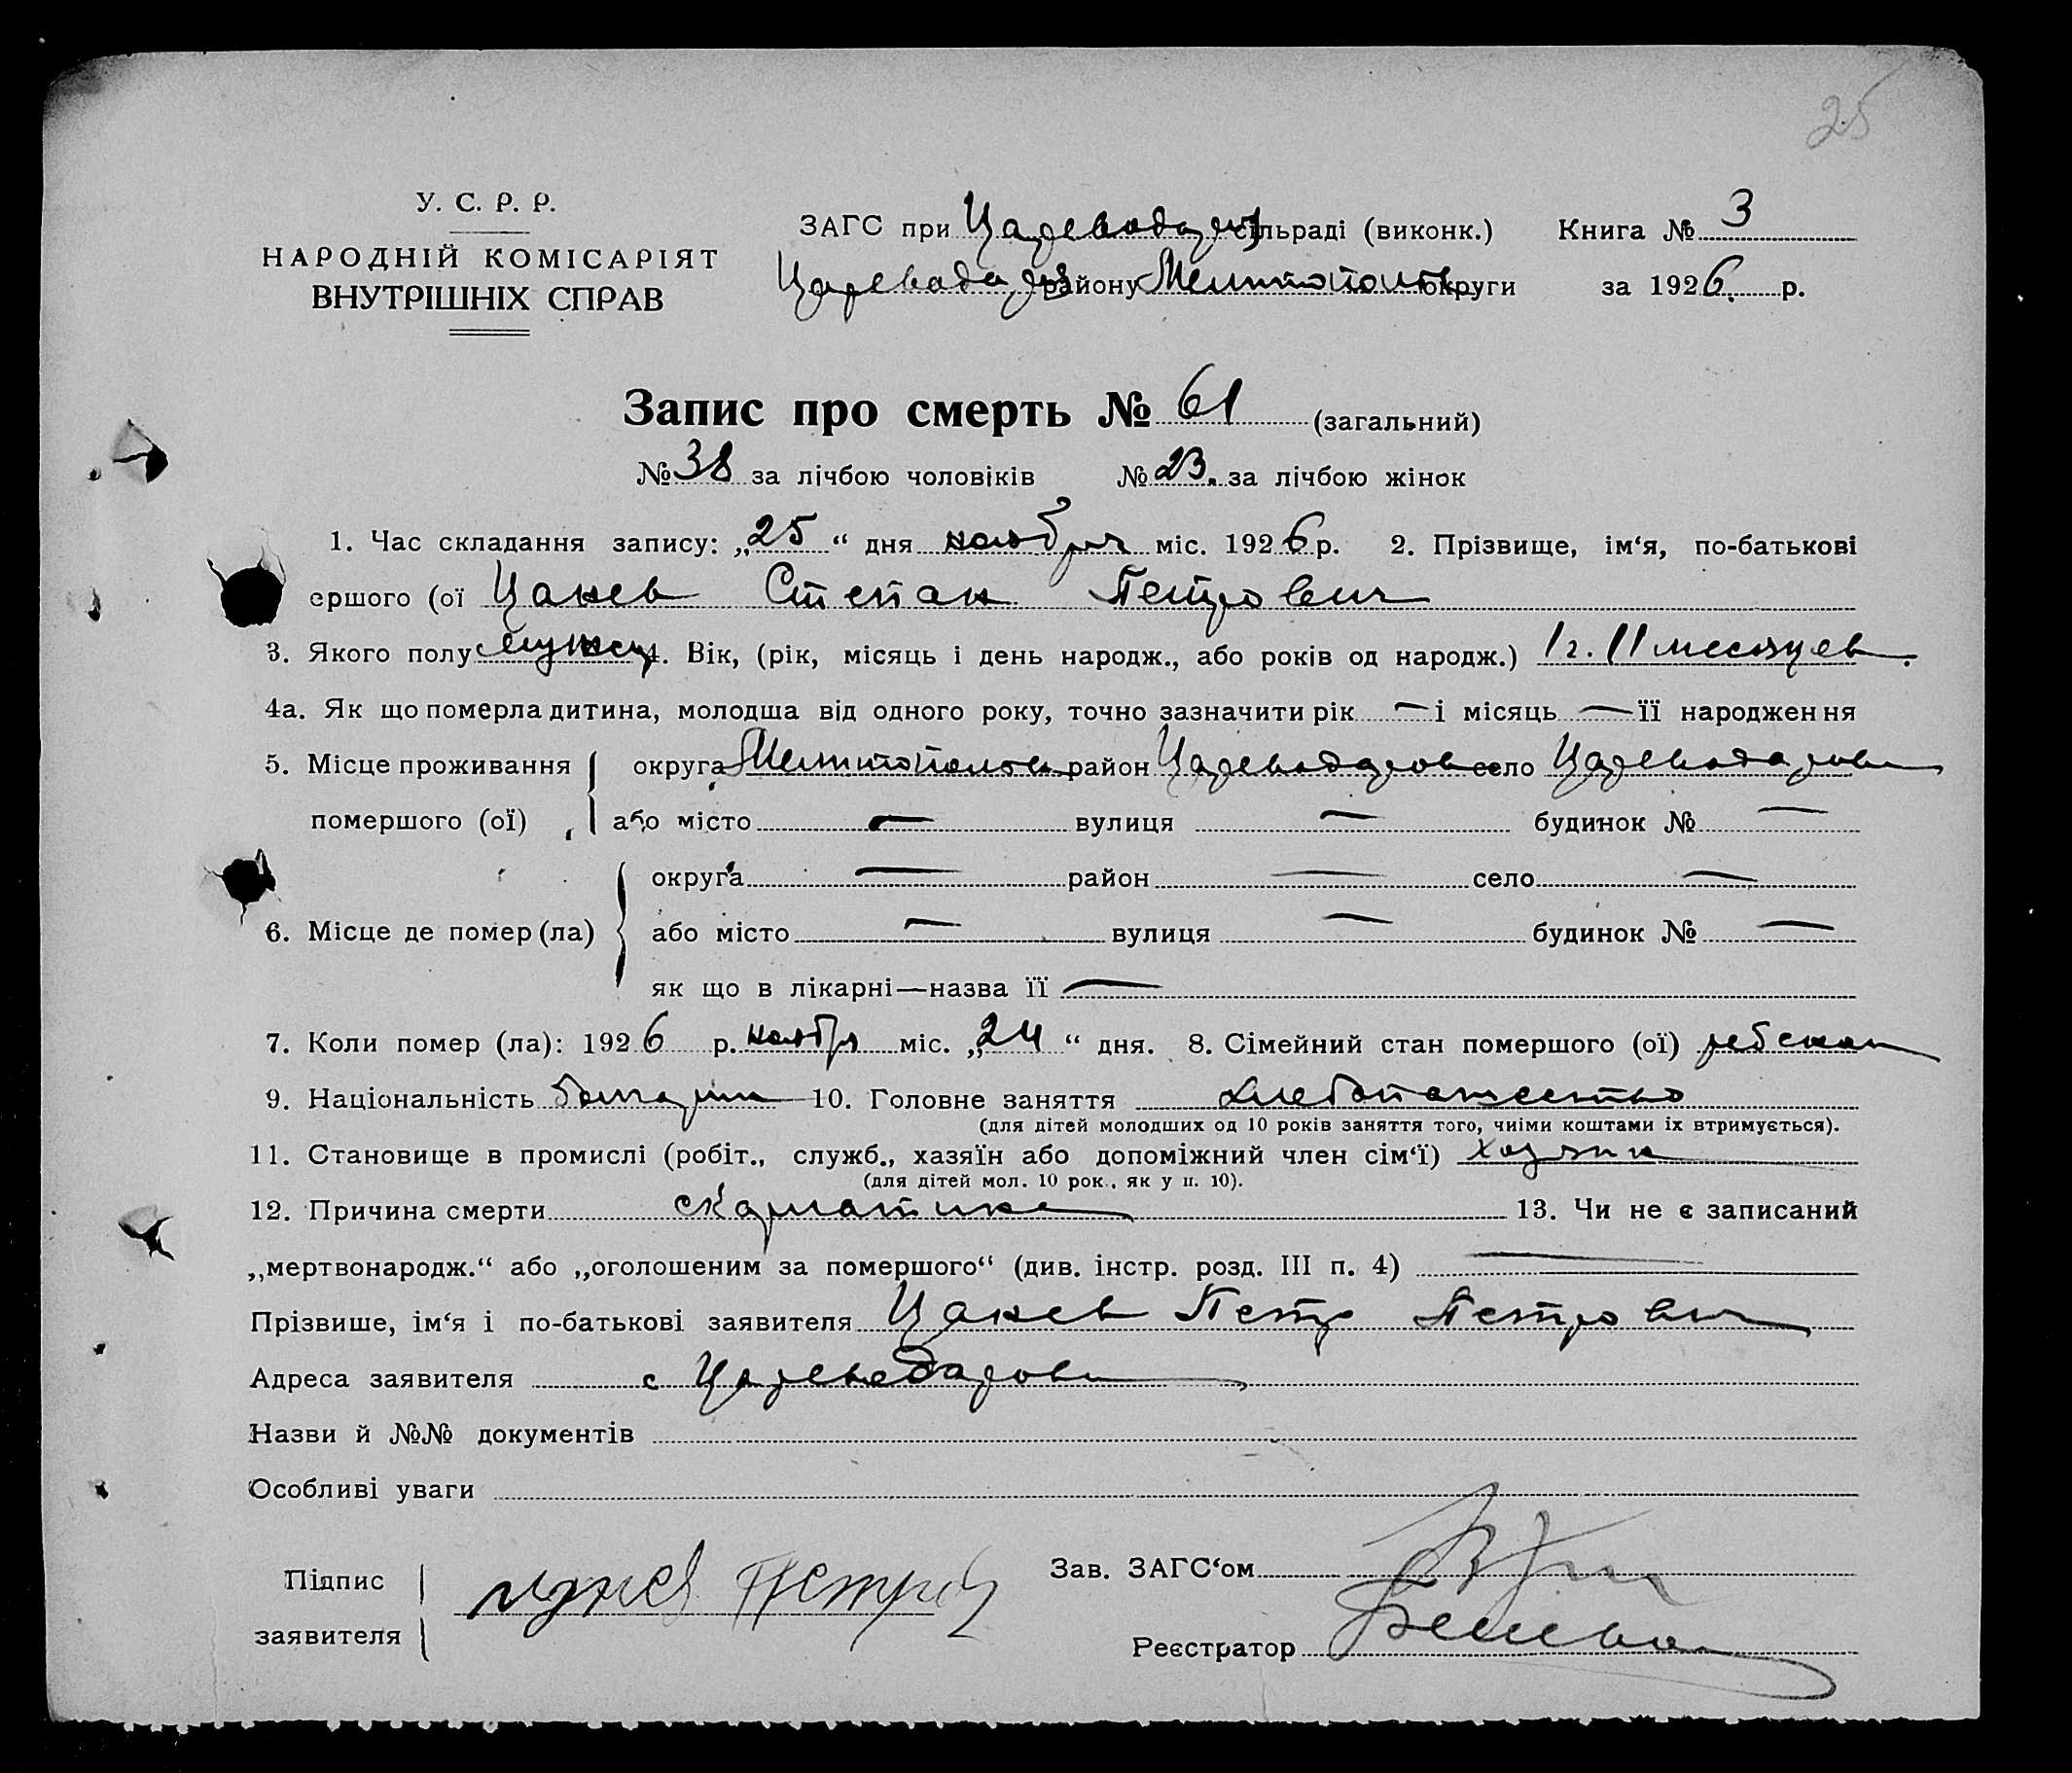 25
У. С. Р. Р.
НАРОДНІЙ КОМІСАРІЯТ
ВНУТРІШНІХ СПРАВ
ЗАГС при Царевода сільраді (виконк.) Книга № 3
району Мелитополь округи за 1926. р.
Запис про смерть № 61 (загальний)
№ 38 за лічбою чоловіків № 23. за лічбою жінок
1. Час складання запису: „25“ дня ноября міс. 1926 р. 2. Прізвище, ім‘я, по-батькові
ершого (ої Цанев Степан Петрович
3. Якого полу мужск 4. Вік, (рік, місяць і день народж., або років од народж.) 1 г. 11 месяцев.
4а. Як що померла дитина, молодша від одного року, точно зазначити рік — і місяць — її народження
5. Місце проживання округа Мелитопольск район Цареводаровск село Цареводаровка
помершого (ої) або місто — вулиця — будинок № —
округа — район — село —
6. Місце де помер (ла) або місто — вулиця — будинок № —
як що в лікарні—назва її —
7. Коли помер (ла): 1926 р. ноября міс. „24“ дня. 8. Сімейний стан помершого (ої) ребенок
9. Національність болгарин 10. Головне заняття хлебопашество
(для дітей молодших од 10 років заняття того, чиїми коштами їх втримується).
11. Становище в промислі (робіт., служб., хазяїн або допоміжний член сім‘ї) хозяин
(для дітей мол. 10 рок., як у п. 10).
12. Причина смерти скарлатина 13. Чи не є записаний
„мертвонародж.“ або „оголошеним за помершого“ (див. інстр. розд. III п. 4) —
Прізвище, ім‘я і по-батькові заявителя Цанев Петр Петрович
Адреса заявителя с Цареводаровка
Назви й №№ документів
Особливі уваги
Підпис
заявителя Цанев Петр
Зав. ЗАГС‘ом
Реєстратор